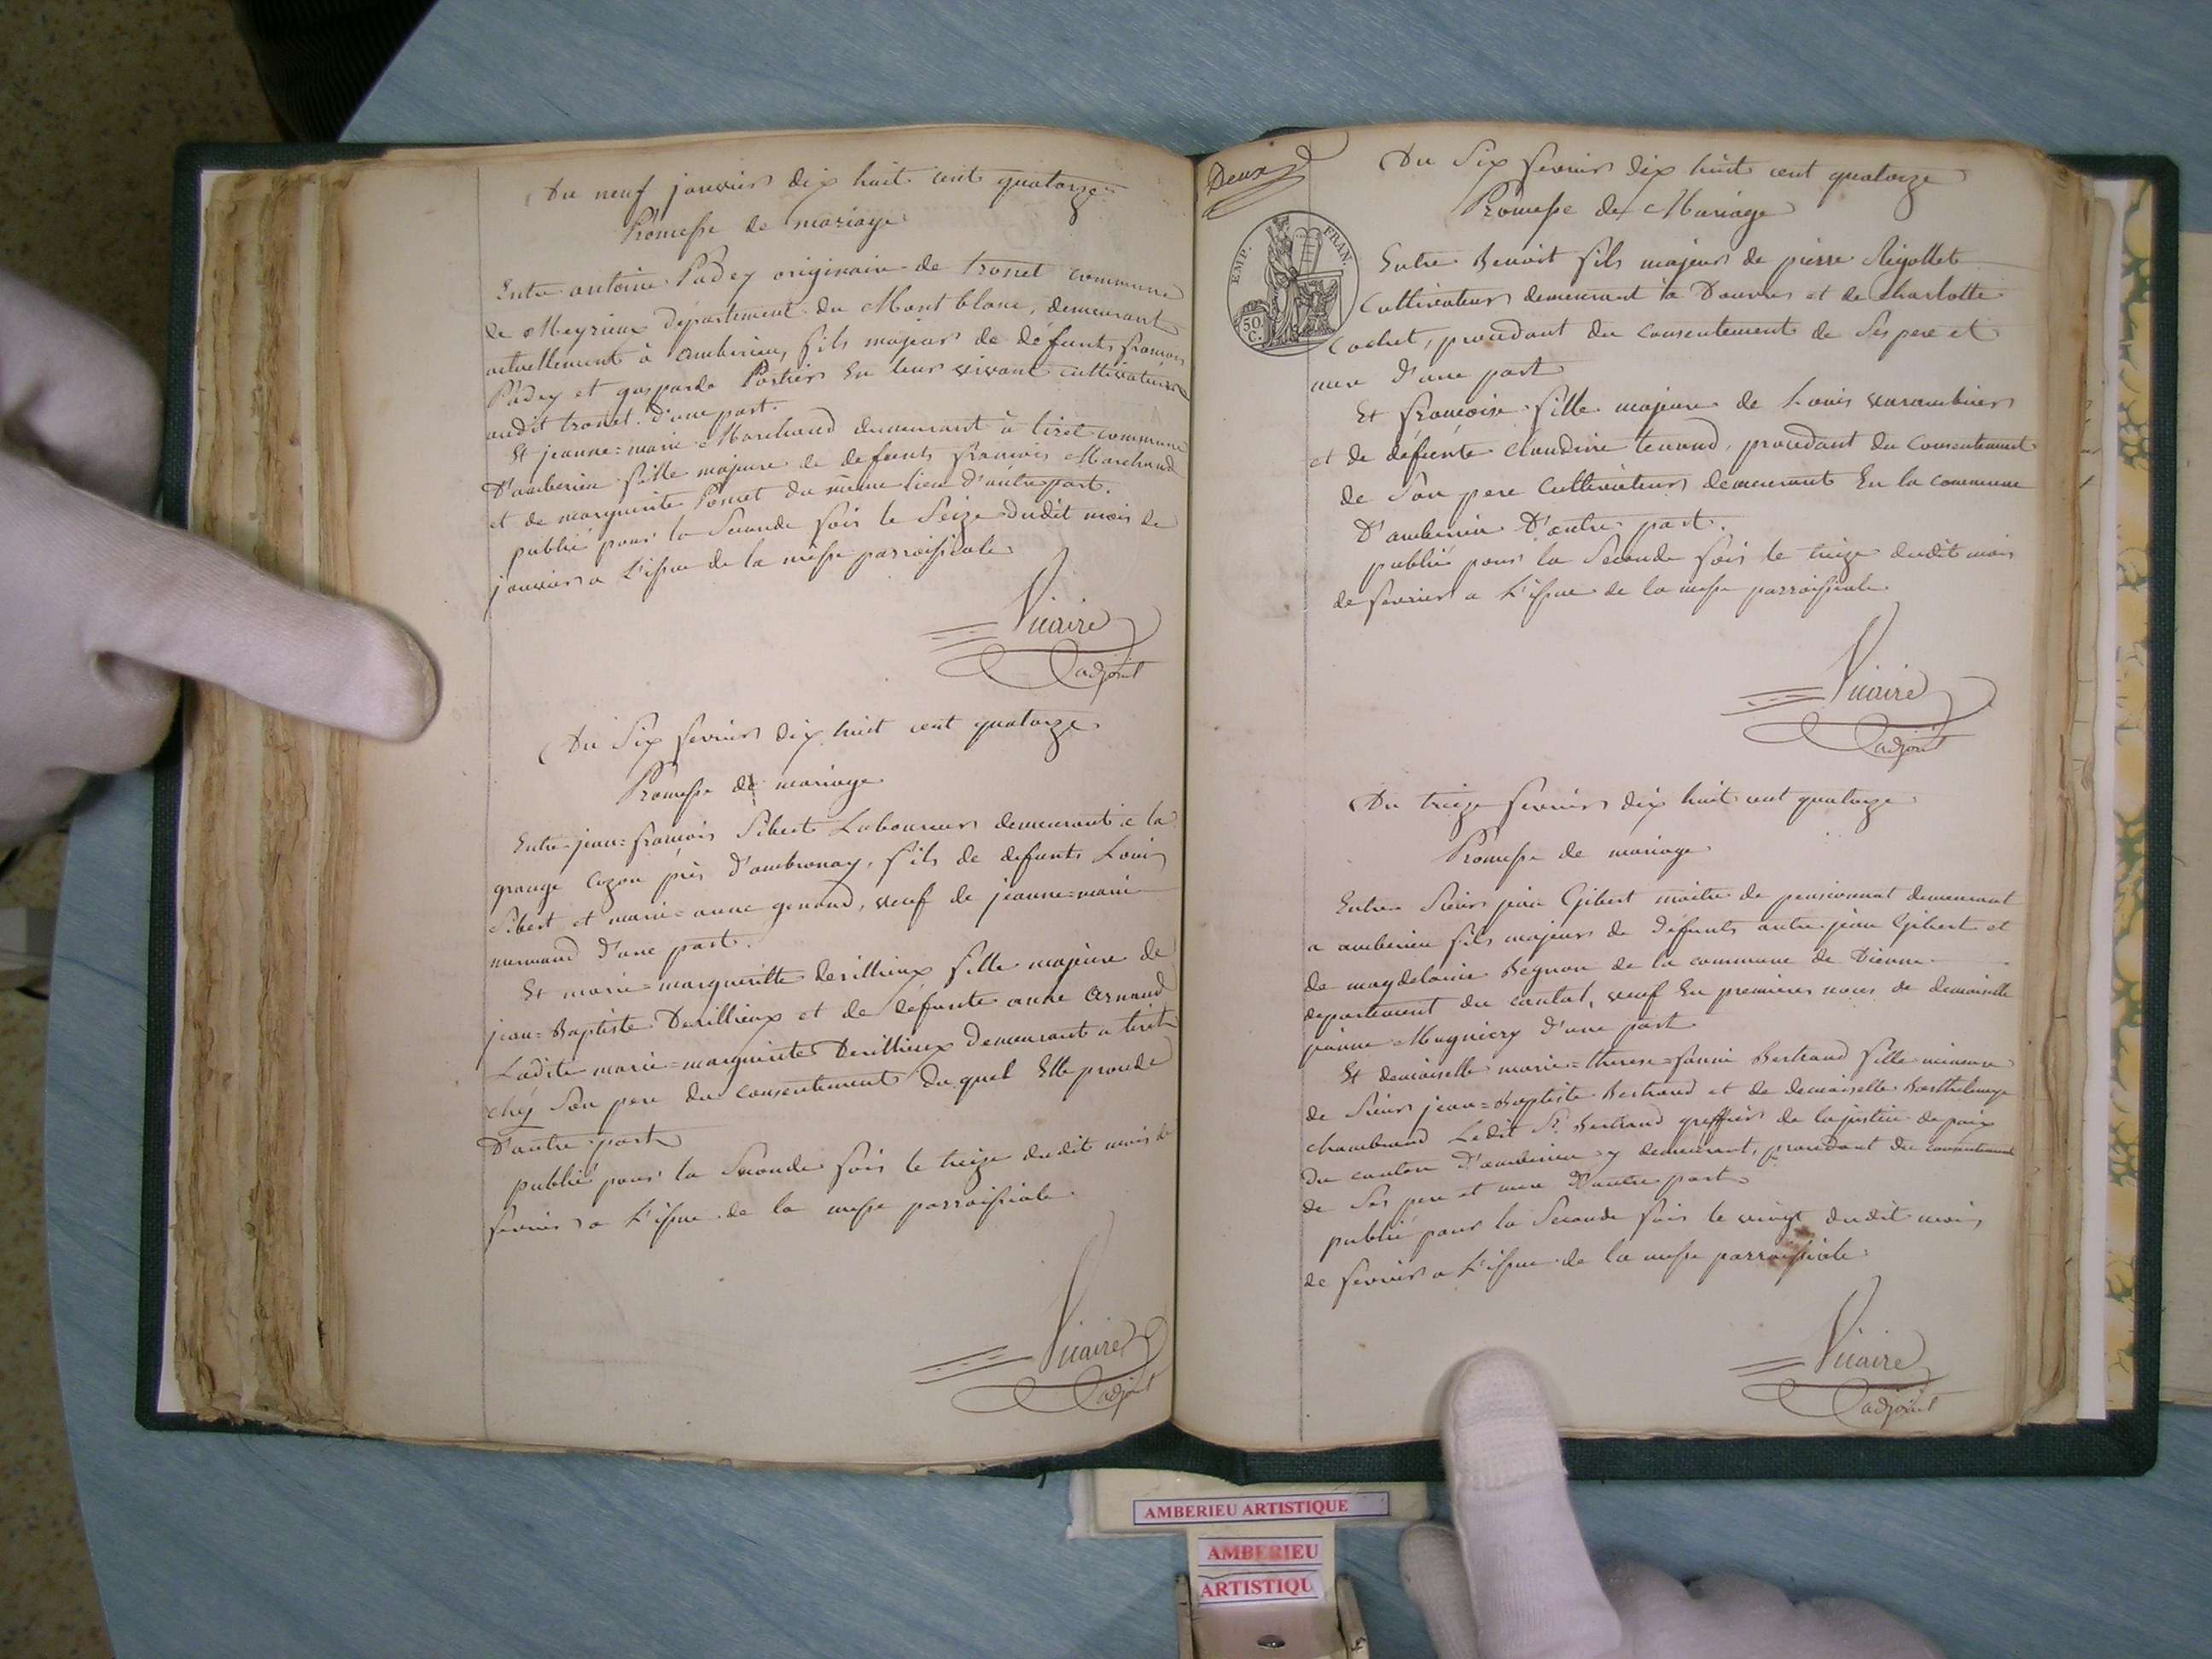 Du neuf janvier dix huit cent quatorze
Promesse de mariage
Entre antoine Padey originaire de tronet commune
de Meyrieux département du Mont blanc, demeurant
actuellement à amberieu, fils majeur de défunts françois
Padey et gasparde Portier En leur vivant cultivateurs
audit tronet. d'une part.
Et jeanne=marie Marchand demeurant à tiret commune
D'amberieu fille majeure de defunts françois Marchand
et de marguerite Poncet du même lieu d'autre part.
publié pour la Seconde fois le Seize dudit mois de
janvier a L'issue de la messe parroissiale
Vicaire
adjoint
Du Six fevrier dix huit cent quatorze
Promesse de mariage
Entre jean=françois Sibert Laboureur demeurant a la
grange cozon près d'ambronay, fils de defunts Louis
Sibert et marie=anne genoud, veuf de jeanne=marie
d'une part.
Et marie=marguerite derillieux fille majeure de
jean=Baptiste Derillieux et de défunte anne arnaud
Ladite marie=marguerite Derillieux demeurant a tiret
chéz Son pere du consentement du quel Elle procede
D'autre part
publié pour la Seconde fois le treize dudit mois de
fevrier a L'issue de la messe parroissiale
Vicaire
adjoint
Deux
Du Six fevrier dix huit cent quatorze
Promesse de Mariage
EMP. FRAN.
50 C.
Entre Benoit fils majeur de pierre Rigollet
Cultivateur demeurant à Douvres et de charlotte
Cochet, procedant du consentement de Ses pere et
mere d'une part
Et françoise fille majeure de Louis varambier
et de défunte claudine tenand, procedant du Consentement
de Son pere Cultivateur demeurant En la commune
D'amberieu D'autre part.
publié pour la Seconde fois le treize dudit mois
de fevrier a L'issue de la messe parroissiale
Vicaire
adjoint
Du treize fevrier dix huit cent quatorze
Promesse de mariage
Entre Sieur jean Gibert maitre de pensionnat demeurant
a amberieu fils majeur de défunts autre jean Gibert et
de magdelaine Begnon de la commune de Dienne
departement du cantal, veuf En premieres noces de demoiselle
jeanne Mugniery d'une part
Et demoiselle marie=therese=fanni Bertrand fille mineure
de Sieur jean=Baptiste Bertrand et de demoiselle Barthelemye
chambrand Ledit Sr. Bertrand greffier de la justice de paix
du canton d'amberieu y demeurant, procedant du consentement
de Ses pere et mere D'autre part
publié pour la Seconde fois le vingt dudit mois
de fevrier a L'issue de la messe parroissiale
Vicaire
adjoint
AMBERIEU ARTISTIQUE
AMBERIEU
ARTISTIQU